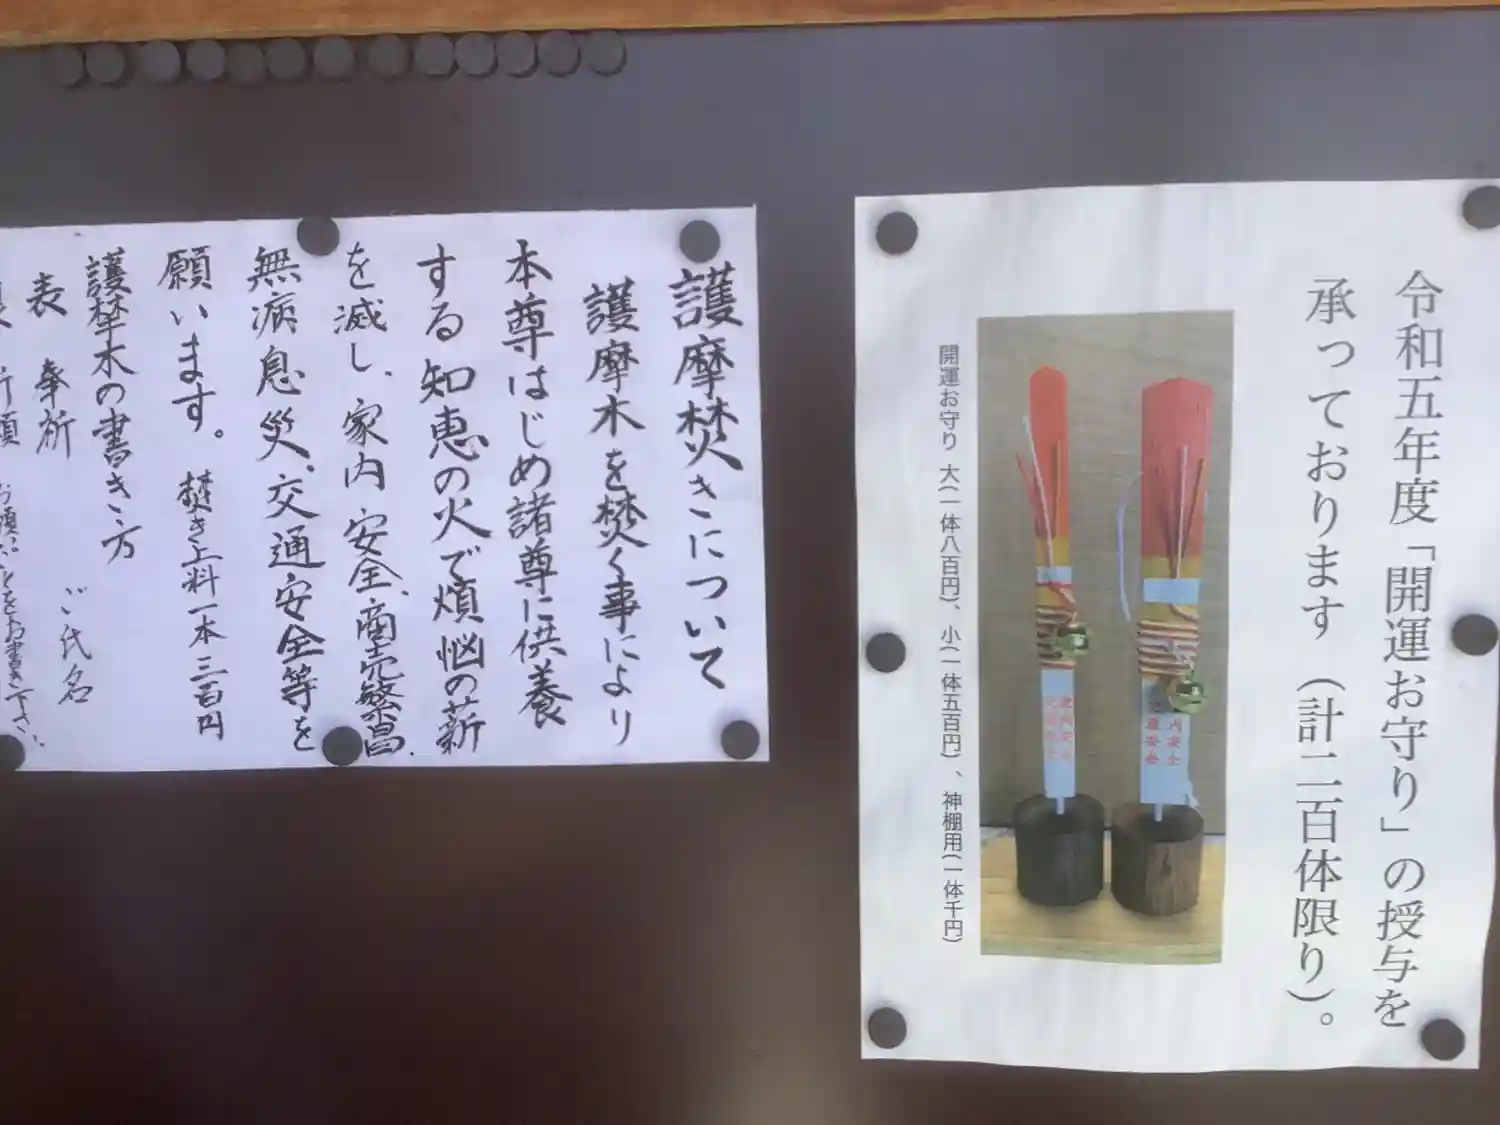 令和五年度「開運お守り」の授与を
承っております（計二百体限り）。
家内安全
交通安全
開運お守り 大(一体八百円)、小(一体五百円)、神棚用(一体千円)
護摩焚きについて
護摩木を焚く事により
本尊はじめ諸尊に供養
する知恵の火で煩悩の薪
を滅し、家内安全、商売繁昌、
無病息災、交通安全等を
願います。 焚き上料一本三百円
護摩木の書き方
表 奉祈 ご氏名
祈願 お願いごとをお書き下さい。